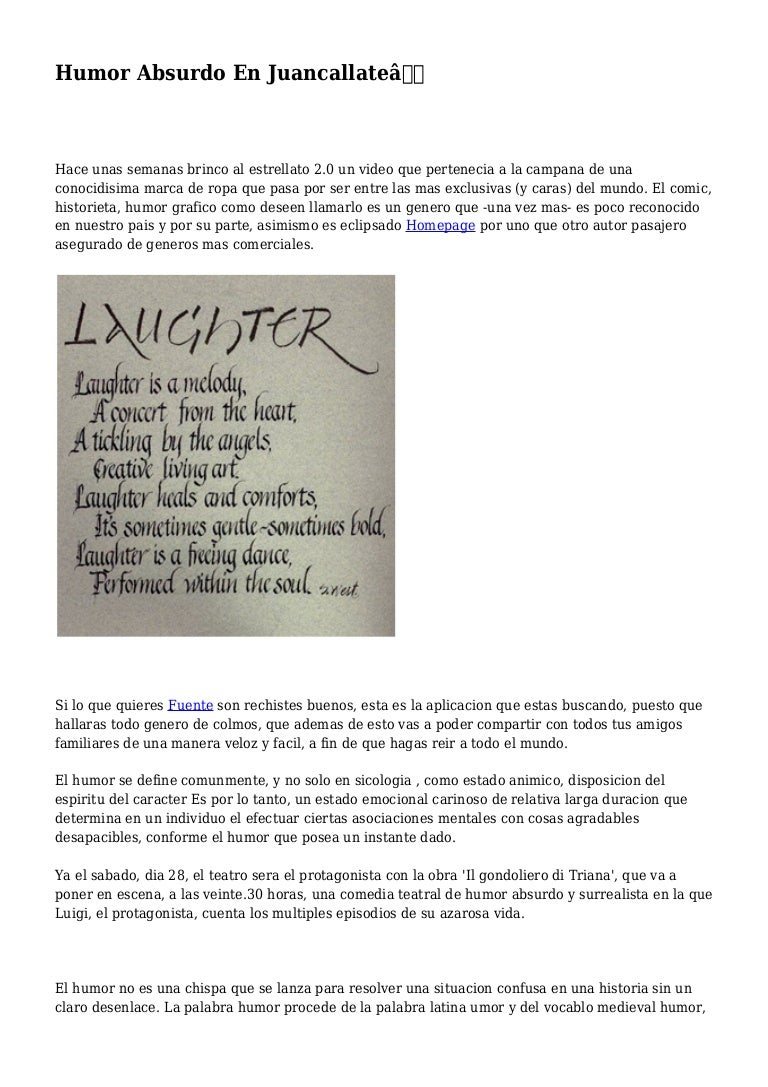 Humor Absurdo En Juancallateâ
Hace unas semanas brinco al estrellato 2.0 un video que pertenecia a la campana de una
conocidisima marca de ropa que pasa por ser entre las mas exclusivas (y caras) del mundo. El comic,
historieta, humor grafico como deseen llamarlo es un genero que -una vez mas- es poco reconocido
en nuestro pais y por su parte, asimismo es eclipsado Homepage por uno que otro autor pasajero
asegurado de generos mas comerciales.
LAUGHTER
Laughter is a melody,
A concert from the heart,
A tickling by the angels,
Creative living art.
Laughter heals and comforts,
It's sometimes gentle~sometimes bold,
Laughter is a freeing dance,
Performed within the soul.
Si lo que quieres Fuente son rechistes buenos, esta es la aplicacion que estas buscando, puesto que
hallaras todo genero de colmos, que ademas de esto vas a poder compartir con todos tus amigos
familiares de una manera veloz y facil, a fin de que hagas reir a todo el mundo.
El humor se define comunmente, y no solo en sicologia , como estado animico, disposicion del
espiritu del caracter Es por lo tanto, un estado emocional carinoso de relativa larga duracion que
determina en un individuo el efectuar ciertas asociaciones mentales con cosas agradables
desapacibles, conforme el humor que posea un instante dado.
Ya el sabado, dia 28, el teatro sera el protagonista con la obra 'Il gondoliero di Triana', que va a
poner en escena, a las veinte.30 horas, una comedia teatral de humor absurdo y surrealista en la que
Luigi, el protagonista, cuenta los multiples episodios de su azarosa vida.
El humor no es una chispa que se lanza para resolver una situacion confusa en una historia sin un
claro desenlace. La palabra humor procede de la palabra latina umor y del vocablo medieval humor,